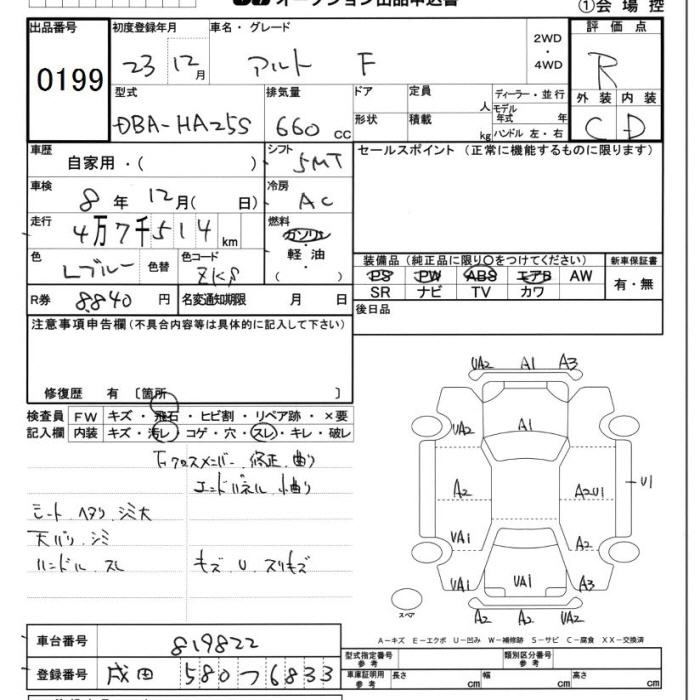 オークション出品申込書
①会場控
出品番号 初度登録年月 車名・グレード 2WD・4WD 評価点
0199 23 12月 アルト F R
型式 排気量 ドア 定員 人 ディーラー・並行 外装 内装
DBA-HA25S 660cc 形状 積載 kg モデル年式 年 ハンドル 左・右 C D
車歴 自家用・( ) シフト 5MT セールスポイント(正常に機能するものに限ります)
車検 8年 12月( 日) 冷房 AC
走行 4万7千514km 燃料 ガソリン・軽油・( )
色 Lブルー 色替 色コード ZKS 装備品(純正品に限り○をつけてください) 新車保証書
PS PW ABS エアB AW 有・無
SR ナビ TV カワ
R券 8,840円 名変通知期限 月 日 後日品
注意事項申告欄(不具合内容等は具体的に記入して下さい)
修復歴 有 〔箇所 〕
検査員 FW キズ・飛石・ヒビ割・リペア跡・×要
記入欄 内装 キズ・汚レ・コゲ・穴・スレ・キレ・破レ
Fクロスメンバー 修正、曲り
エンドパネル 小曲り
シート ヘタリ、シミ大
天バリ、シミ
ハンドル スレ キズ、U、スリキズ
UA2 A1 A3
UA2 A1
A2 A2U1 U1
UA1 A2
UA1 UA1 A3
A2 A2 UA2
スペア
A-キズ E-エクボ U-凹み W-補修跡 S-サビ C-腐食 XX-交換済
車台番号 819822
登録番号 成田 580 つ 6833
型式指定番号 参考 類別区分番号 参考
車庫証明用 参考 長さ cm 幅 cm 高さ cm